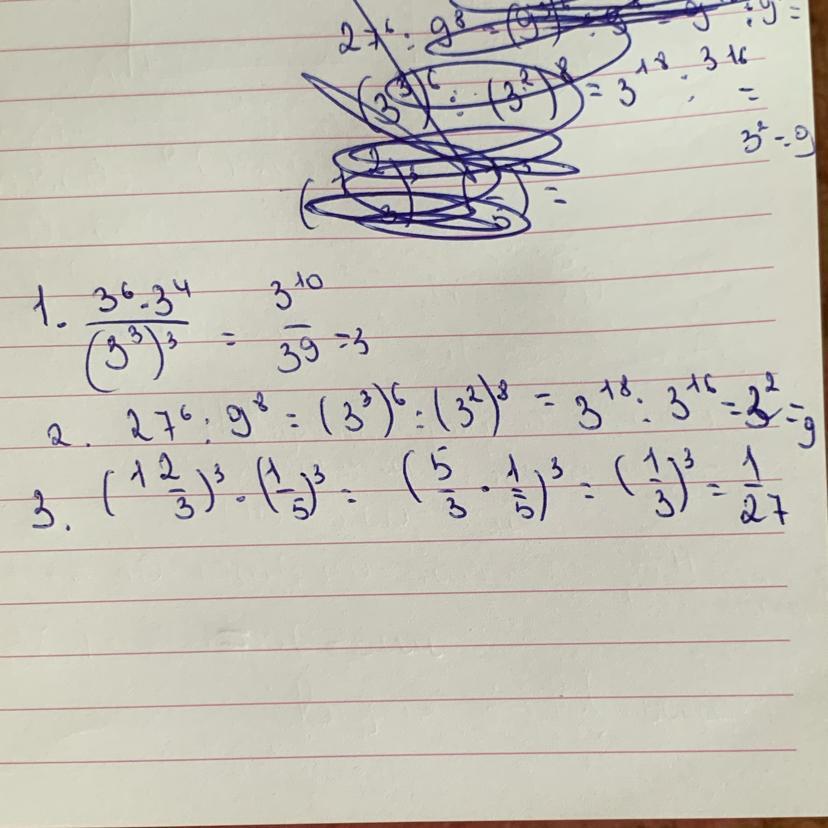 27⁶ : 9⁸
(3³)⁶ : (3²)⁸ = 3¹⁸ : 3¹⁶ =
3² = 9
1. 3⁶ · 3⁴ / (3³)³ = 3¹⁰ / 39 = 3
2. 27⁶ : 9⁸ = (3³)⁶ : (3²)⁸ = 3¹⁸ : 3¹⁶ = 3² = 9
3. (1 2/3)³ · (1/5)³ = (5/3 · 1/5)³ = (1/3)³ = 1/27